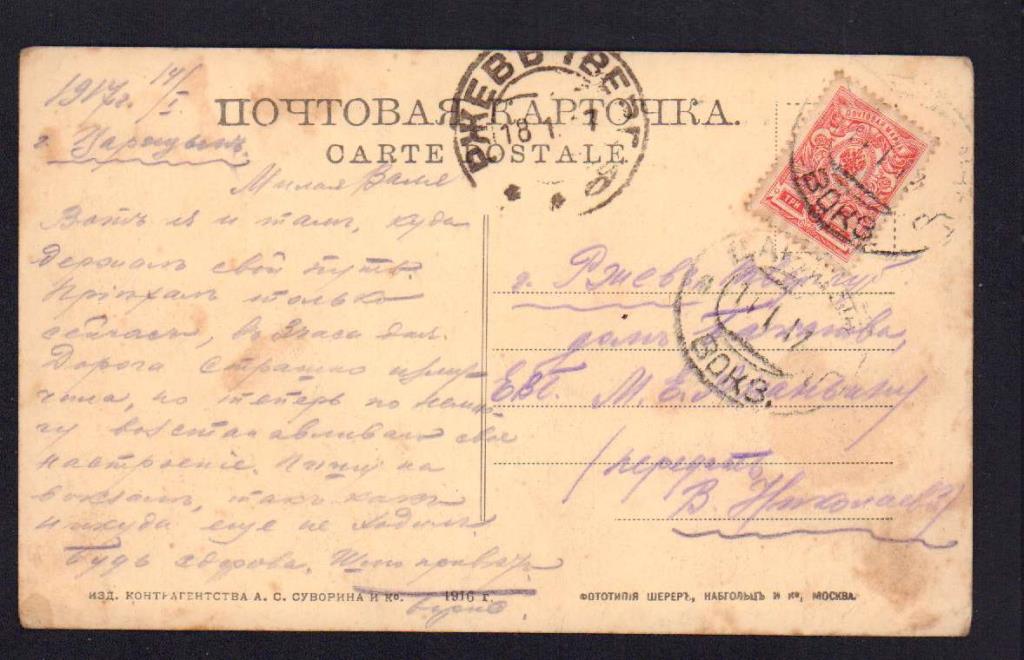 1917г. 14/I
ПОЧТОВАЯ КАРТОЧКА.
г. Царицынъ
CARTE POSTALE.
РЖЕВЪ ТВЕР
18 1
Милая Валя
Вотъ я и тамъ, куда
держалъ свой путь.
Пріѣхалъ только
сейчасъ, въ 3 часа дня.
Дорога страшно изму-
чила, но теперь по немно-
гу возстанавливаю свое
настроеніе. Пишу на
вокзалѣ, такъ какъ
никуда еще не ходилъ.
Будь здорова. Шлю приветъ
ТРИ
ВОКЗ.
ВОКЗ.
г. Ржевъ
домъ
М. Е.
(передать
В. Николаевой)
ИЗД. КОНТРАГЕНТСТВА А. С. СУВОРИНА И Ко. 1916 г.
ФОТОТИПІЯ ШЕРЕРЪ, НАБГОЛЬЦЪ И Ко, МОСКВА.